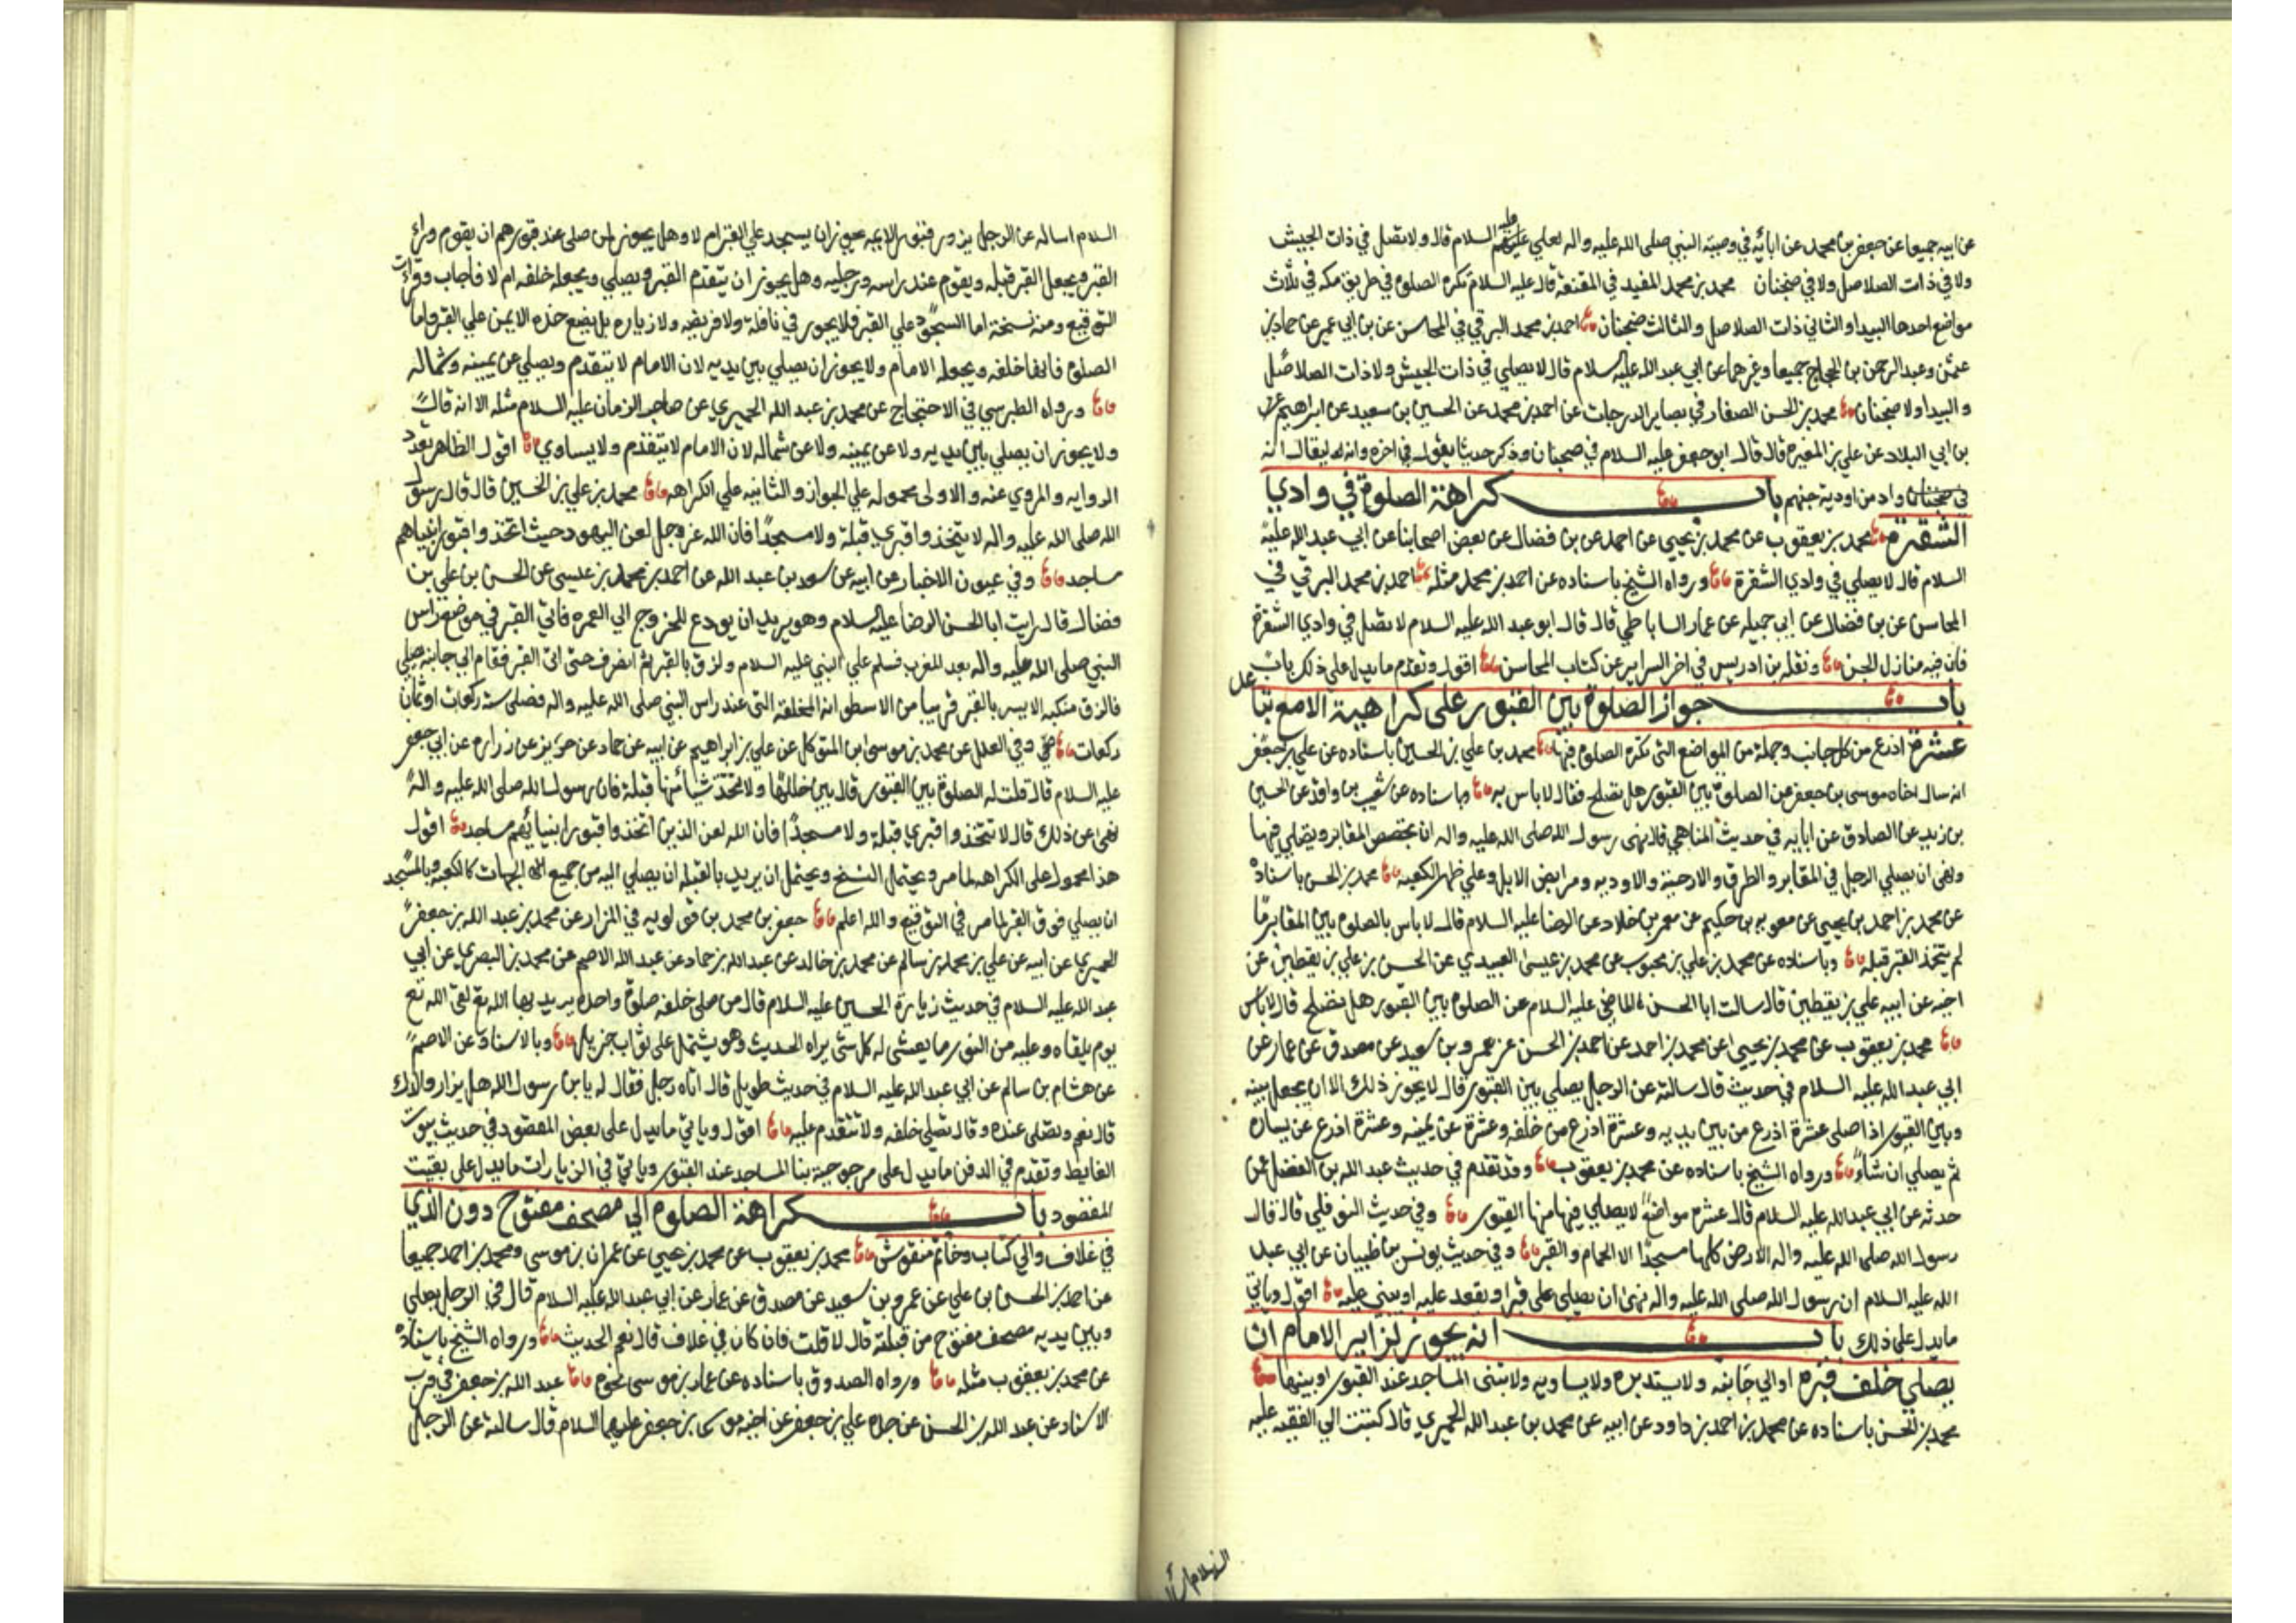 عن ابيه جميعا عن جعفر بن محمد عن ابائه في وصية النبي صلى الله عليه واله لعلي عليه السلام قال ولا تصل في ذات الجيش
ولا في ذات الصلاصل ولا في ضجنان محمد بن محمد المفيد في المقنعة قال عليه السلام تكره الصلوة في طريق مكه في ثلاث
مواضع احدها البيدا والثاني ذات الصلاصل والثالث ضجنان احمد بن محمد البرقي في المحاسن عن بن ابي عمير عن حماد بن
عثمن وعبد الرحمن بن الحجاج جميعا وغيرهما عن ابي عبد الله عليه السلام قال لا يصلي في ذات الجيش ولا ذات الصلاصل
والبيدا ولا ضجنان محمد بن الحسن الصفار في بصاير الدرجات عن احمد بن محمد عن الحسين بن سعيد عن ابراهيم
بن ابي البلاد عن علي بن المغيرة قال قال ابو جعفر عليه السلام في ضجنان وذكر حديثا يقول في اخره وانه ليقال انه
في ضجنان واد من اودية جهنم باب كراهة الصلوة في وادي
الشقرة محمد بن يعقوب عن محمد بن يحيى عن احمد عن بن فضال عن بعض اصحابنا عن ابي عبد الله عليه
السلام قال لا يصلي في وادي الشقرة ورواه الشيخ باسناده عن احمد بن محمد مثله احمد بن محمد البرقي في
المحاسن عن بن فضال عن ابي جميله عن عمار الساباطي قال قال ابو عبد الله عليه السلام لا تصل في وادي الشقرة
فان فيه منازل الجن ونقله بن ادريس في اخر السراير عن كتاب المحاسن اقول وتقدم ما يدل على ذلك
باب جواز الصلوة بين القبور على كراهية الا مع تباعد
عشرة اذرع من كل جانب وجملة من المواضع التى تكره الصلوة فيها محمد بن علي بن الحسين باسناده عن علي بن جعفر
انه سال اخاه موسى بن جعفر عن الصلوة بين القبور هل تصلح فقال لا باس به وباسناده عن شعيب بن واقد عن الحسين
بن زيد عن الصادق عن ابايه في حديث المناهي قال نهى رسول الله صلى الله عليه واله ان يجصص المقابر ويصلي فيها
ونهى ان يصلي الرجل في المقابر والطرق والارحية والاوديه ومرابض الابل وعلي ظهر الكعبه محمد بن الحسن باسناده
عن محمد بن احمد بن يحيى عن معويه بن حكيم عن معمر بن خلاد عن الرضا عليه السلام قال لا باس بالصلوة بين المقابر ما
لم يتخذ القبر قبله وباسناده عن محمد بن علي بن محبوب عن محمد بن عيسى العبيدي عن الحسن بن علي بن يقطين عن
اخيه عن ابيه علي بن يقطين قال سالت ابا الحسن الماضي عليه السلام عن الصلوة بين القبور هل تصلح قال لا باس
محمد بن يعقوب عن محمد بن يحيى عن محمد بن احمد عن احمد بن الحسن عن عمرو بن سعيد عن مصدق عن عمار عن
ابي عبد الله عليه السلام في حديث قال سالته عن الرجل يصلي بين القبور قال لا يجوز ذلك الا ان يجعل بينه
وبين القبور اذا صلى عشرة اذرع من بين يديه وعشرة اذرع من خلفه وعشرة عن يمينه وعشرة اذرع عن يساره
ثم يصلي ان شاء ورواه الشيخ باسناده عن محمد بن يعقوب وقد تقدم في حديث عبد الله بن الفضل عمن
حدثه عن ابي عبد الله عليه السلام قال عشرة مواضع لا يصلي فيها منها القبور وفي حديث النوفلي قال قال
رسول الله صلى الله عليه واله الارض كلها مسجدا الا الحمام والقبر وفي حديث يونس بن ظبيان عن ابي عبد
الله عليه السلام ان رسول الله صلى الله عليه واله نهى ان يصلي على قبر او يقعد عليه او يبني عليه اقول وياتي
ما يدل على ذلك باب انه يجوز لزاير الامام ان
يصلي خلف قبره او الي جانبه ولا يستدبره ولا يساويه ولا تبنى المساجد عند القبور او بينها
محمد بن الحسن باسناده عن محمد بن احمد بن داود عن ابيه عن محمد بن عبد الله الحميري قال كتبت الي الفقيه عليه
السلام اساله عن الرجل يزور قبور الايمه هل يجوز ان يسجد علي القبر ام لا وهل يجوز لمن صلى عند قبورهم ان يقوم وراء
القبر ويجعل القبر قبله ويقوم عند راسه ورجليه وهل يجوز ان يتقدم القبر ويصلي ويجعله خلفه ام لا فاجاب وقرات
التوقيع ومنه نسخت اما السجود علي القبر فلا يجوز في نافلة ولا فريضه ولا زياره بل يضع خده الايمن علي القبر واما
الصلوة فانها خلفه ويجعله الامام ولا يجوز ان يصلي بين يديه لان الامام لا يتقدم ويصلي عن يمينه وشماله
ورواه الطبرسي في الاحتجاج عن محمد بن عبد الله الحميري عن صاحب الزمان عليه السلام مثله الا انه قال
ولا يجوز ان يصلي بين يديه ولا عن يمينه ولا عن شماله لان الامام لا يتقدم ولا يساوي اقول الظاهر تعدد
الروايه والمروي عنه والاولى محموله علي الجواز والثانيه علي الكراهه محمد بن علي بن الحسين قال قال رسول
الله صلى الله عليه واله لا يتخذوا قبري قبلة ولا مسجدا فان الله عز وجل لعن اليهود حيث اتخذوا قبور انبياهم
مساجد وفي عيون الاخبار عن ابيه عن سعد بن عبد الله عن احمد بن محمد بن عيسى عن الحسن بن علي بن
فضال قال رايت ابا الحسن الرضا عليه السلام وهو يريد ان يودع للخروج الي العمره فاتي القبر في موضع راس
النبي صلى الله عليه واله بعد المغرب فسلم علي النبي عليه السلام ولزق بالقبر ثم انصرف حتى اتى القبر فقام الي جانبه يصلي
فالزق منكبه الايسر بالقبر قريبا من الاسطوانه المخلقة التى عند راس النبي صلى الله عليه واله فصلى ست ركعات او ثمان
ركعات وفي العلل عن محمد بن موسى بن المتوكل عن علي بن ابراهيم عن ابيه عن حماد عن حريز عن زراره عن ابي جعفر
عليه السلام قال قلت له الصلوة بين القبور قال بين خللها ولا تتخذ شيا منها قبلة فان رسول الله صلى الله عليه واله
نهى عن ذلك قال لا تتخذوا قبري قبلة ولا مسجدا فان الله لعن الذين اتخذوا قبور انبيائهم مساجد اقول
هذا محمول على الكراهه لما مر ويحتمل النسخ ويحتمل ان يريد بالقبله ان يصلي اليه من جميع الجهات كالكعبه وبالمسجد
ان يصلي فوق القبر لما مر في التوقيع والله اعلم جعفر بن محمد بن قولويه في المزار عن محمد بن عبد الله بن جعفر
الحميري عن ابيه عن علي بن محمد بن سالم عن محمد بن خالد عن عبد الله بن حماد عن عبد الله الاصم عن محمد بن البصري عن ابي
عبد الله عليه السلام في حديث زيارة الحسين عليه السلام قال من صلى خلفه صلوة واحده يريد بها الله تع لقى الله تع
يوم يلقاه وعليه من النور ما يغشى له كل شئ يراه الحديث وهو يشتمل على ثواب جزيل وبالاسناد عن الاصم
عن هشام بن سالم عن ابي عبد الله عليه السلام في حديث طويل قال اتاه رجل فقال له يا بن رسول الله هل يزار والدك
قال نعم ويصلى عنده وقال يصلي خلفه ولا يتقدم عليه اقول وياتي ما يدل على بعض المقصود في حديث بيوت
الغايط وتقدم في الدفن ما يدل على مرجوحية بنا المساجد عند القبور وياتي في الزيارات ما يدل على بقيت
المقصود باب كراهة الصلوة الي مصحف مفتوح دون الذي
في غلاف والي كتاب وخاتم منقوش محمد بن يعقوب عن محمد بن يحيى عن عمران بن موسى ومحمد بن احمد جميعا
عن احمد بن الحسن بن علي عن عمرو بن سعيد عن مصدق عن عمار عن ابي عبد الله عليه السلام قال في الرجل يصلي
وبين يديه مصحف مفتوح من قبلته قال لا قلت فان كان في غلاف قال نعم الحديث ورواه الشيخ باسناده
عن محمد بن يعقوب مثله ورواه الصدوق باسناده عن عمار بن موسى نحوه عبد الله بن جعفر في قرب
الاسناد عن عبد الله بن الحسن عن جده علي بن جعفر عن اخيه موسى بن جعفر عليهما السلام قال سالته عن الرجل